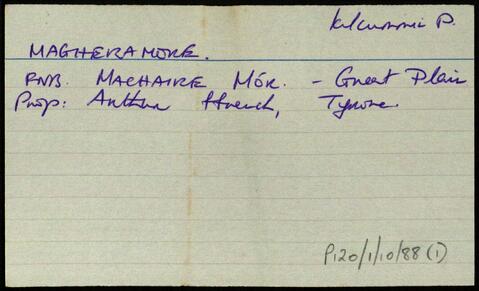 Kilcummin P.
MAGHERAMORE.
FNB. MACHAIRE MÓR. - Great Plain
Prop: Arthur French, Tyrone.
P120/1/10/88(1)